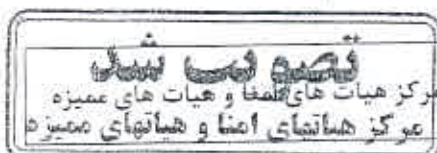 تصویب شد
مرکز هیات های امنا و هیات های ممیزه
مرکز هیاتهای امنا و هیاتهای ممیزه